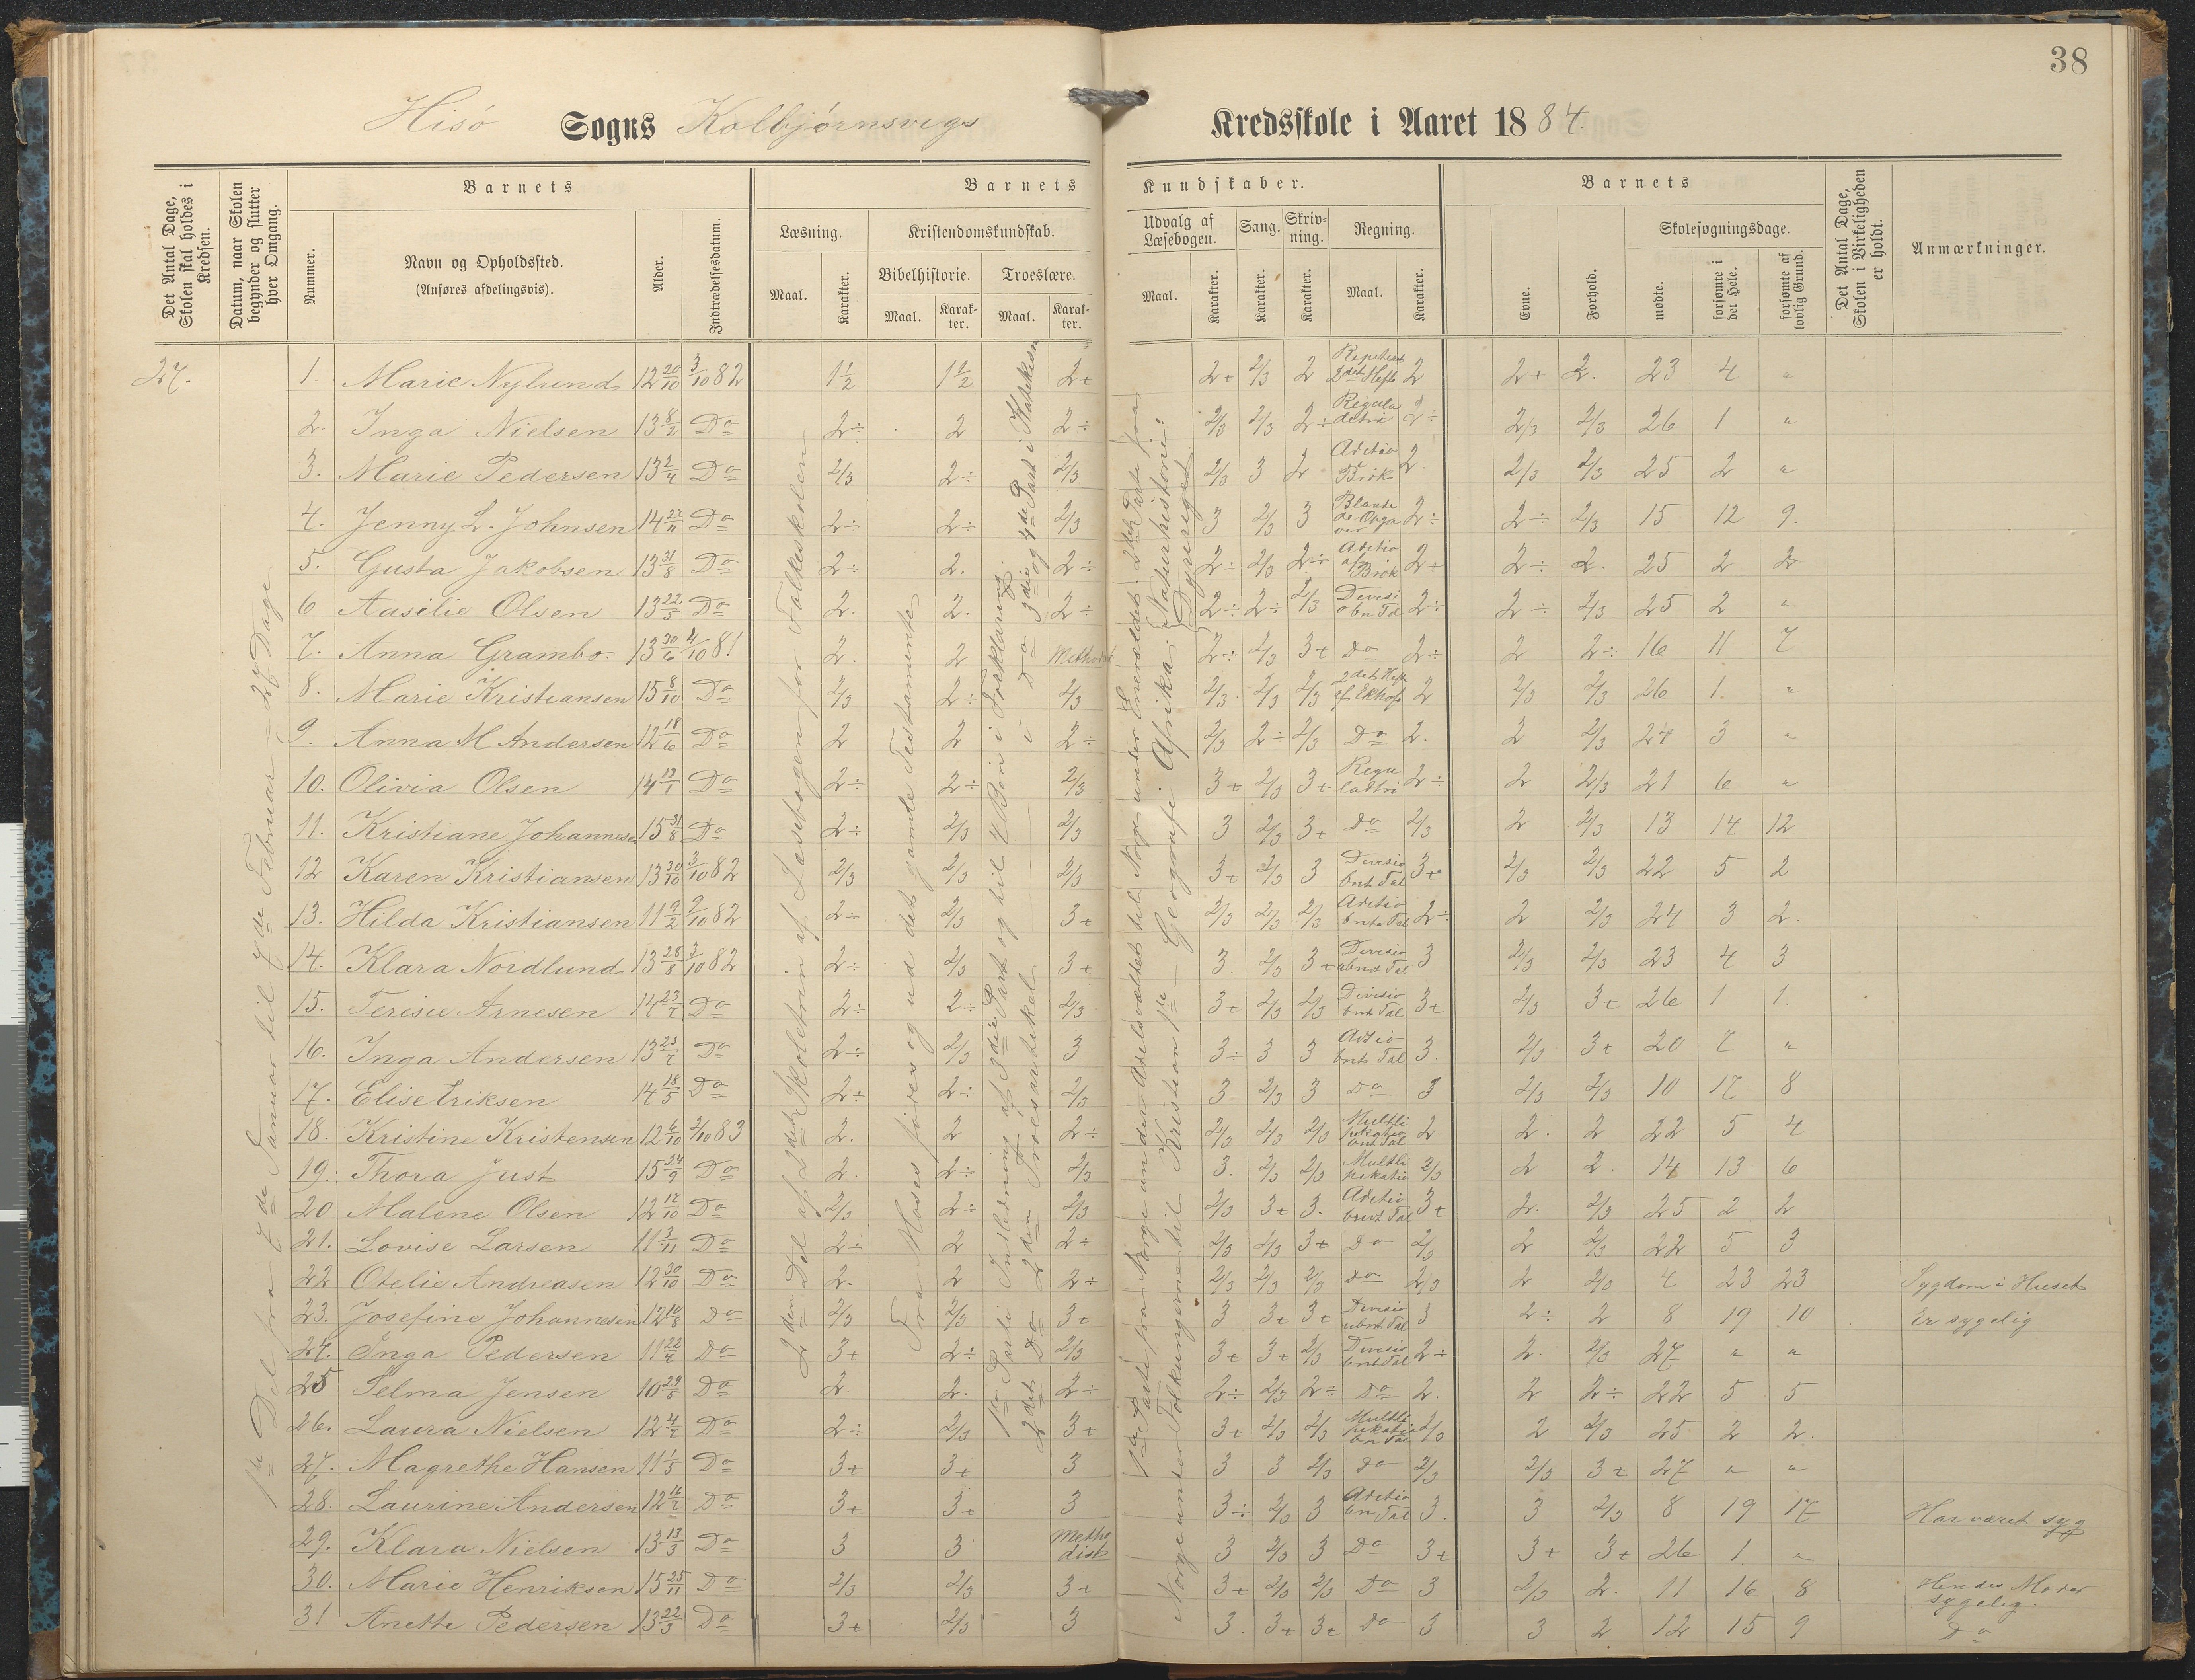 38
Hisö Sogns Kolbjørnsvigs Kredsskole i Aaret 1884
Det Antal Dage, Skolen skal holdes i Kredsen.
Datum, naar Skolen begynder og slutter hver Omgang.
Barnets
Nummer.
Navn og Opholdssted.
(Anføres afdelingsvis).
Alder.
Indtrædelsesdatum.
Barnets Kundskaber.
Læsning.
Maal. Karakter.
Kristendomskundskab.
Bibelhistorie. Troeslære.
Maal. Karakter. Maal. Karakter.
Udvalg af Læsebogen.
Maal. Karakter.
Sang.
Karakter.
Skrivning.
Karakter.
Regning.
Maal. Karakter.
Barnets
Evne. Forhold.
Skolesøgningsdage.
mødte. forsømte i det Hele. forsømte af lovlig Grund.
Det Antal Dage, Skolen i Virkeligheden er holdt.
Anmærkninger.
27.
1ste Del fra 7de Januar til 7de Februar = 27 Dage
2den Del af 2det Skoletrin af Læsebogen for Folkeskolen
Fra Moses fires og ud det gamle Testamente
1ste Parti Indledning af 3die Part og til 4 Bøn i Forklaring.
2det Do 2den Troesartikel i Do 3die og 4de Part i Katekism
1ste Parti fra Norge under Adelsvældet til Norge under Enevældet. 2det Parti fra
Norge under Folkungerne til Kristian 1ste – Geografi: Afrika. Naturhistorie: Dyreriget
1. Marie Nylund 12 20/10 3/10 82 1½ 1½ 2+ 2+ 2/3 2 Repeteret 2det Hefte 2 2+ 2. 23 4 "
2. Inga Nielsen 13 8/2 Do 2÷ 2 2÷ 2/3 2/3 2÷ Regula detri 2÷ 2/3 2/3 26 1 "
3. Marie Pedersen 13 2/4 Do 2/3 2÷ 2/3 2/3 3 2 Aditio Brök 2. 2/3 2/3 25 2 "
4. Jenny L. Johnsen 14 27/11 Do 2÷ 2÷ 2/3 3 2/3 3 Blande de Opga ver 2÷ 2÷ 2/3 15 12 9.
5. Gusta Jakobsen 13 31/8 Do 2÷ 2. 2÷ 2÷ 2/3 2÷ Aditio af Brök 2+ 2÷ 2. 25 2 2
6 Aasilie Olsen 13 22/5 Do 2. 2. 2÷ 2÷ 2÷ 2/3 Devisi o bn Tal 2÷ 2÷ 2/3 25 2 "
7. Anna Grambo. 13 30/6 4/10 81 2. 2 Methodist 2÷ 2/3 3+ Do 2÷ 2 2÷ 16 11 7
8. Marie Kristiansen 15 8/10 Do 2/3 2÷ 2/3 2/3 2/3 2/3 2det Hefte af Ekhoff 2 2/3 2/3 26 1. "
9. Anna M Andersen 12 18/6 Do 2 2 2÷ 2/3 2÷ 2/3 Do 2. 2 2/3 24 3 "
10. Olivia Olsen 14 19/1 Do 2÷ 2÷ 2/3 3+ 2/3 3+ Regu ladtri 2÷ 2 2/3 21 6 "
11. Kristiane Johannesen 15 31/8 Do 2÷ 2/3 2/3 3 2/3 3+ Do 2/3 2 2/3 13 14 12
12 Karen Kristiansen 13 30/10 3/10 82 2/3 2/3 2/3 3+ 2/3 3 Divisio bnt Tal 3+ 2/3 2/3 22 5 2
13. Hilda Kristiansen 11 9/2 2/10 82 2÷ 2/3 3+ 2/3 2/3 2/3 Aditio bnt Tal 2÷ 2 2/3 24 3 2.
14. Klara Nordlund 13 28/8 3/10 82 2÷ 2/3 3+ 3. 2/3 3+ Divisio ubnt Tal 3 2/3 2/3 23 4 3
15. Terisie Arnesen 14 23/7 Do 2÷ 2÷ 2/3 3+ 2/3 2/3 Divisio bnt Tal 3+ 2/3 3+ 26 1 1.
16. Inga Andersen 13 23/7 Do 2÷ 2/3 3 3÷ 3 3 Aditio bnt Tal 3. 2/3 3+ 20 7 "
17. Elise Eriksen 14 18/5 Do 2÷ 2÷ 2/3 3 2/3 3 Do 3 2/3 2/3 10 17 8
18. Kristine Kristensen 12 6/10 2/10 83 2. 2 2÷ 2/3 2/3 2/3 Multli pikatio bnt Tal 2. 2. 2 22 5 4
19. Thora Just 15 24/9 Do 2. 2÷ 2/3 3. 2/3 2/3 Multli pikatio 2/3 2 2. 14 13 6
20 Malene Olsen 12 17/10 Do 2/3 2÷ 2/3 2/3 3+ 3. Aditio bnt Tal 3+ 2. 2/3 25 2 2
21. Lovise Larsen 11 3/11 Do 2÷ 2 2÷ 2/3 2/3 3+ Do 2/3 2 2/3 22 5 3
22 Otelie Andreasen 12 30/10 Do 2. 2 2+ 2/3 2/3 2/3 Do 2/3 2 2/3 4 23 23 Sygdom i Huset
23. Josefine Johannesen 12 10/8 Do 2/3 2/3 3+ 3 3+ 3+ Devisio ubnt Tal 3 2÷ 2 8 19 10 Er sygelig
24. Inga Pedersen 11 22/4 Do 3+ 2÷ 2/3 3+ 3+ 2/3 Divisio bnt Tal 2÷ 2. 2/3 27 " "
25 Selma Jensen 10 29/5 Do 2. 2. 2÷ 2÷ 2/3 2÷ Do 2. 2 2÷ 22 5 5
26. Laura Nielsen 12 4/7 Do 2÷ 2/3 3+ 3+ 2/3 2/3 Multli pikatio bn Tal 2/3 2 2/3 25 2 2.
27. Magrethe Hansen 11 1/5 Do 3+ 3+ 3 3 3 2/3 Do 2/3 2/3 3+ 27 " "
28. Laurine Andersen 12 16/7 Do 3+ 3+ 3 3÷ 2/3 3 Aditio bn Tal 3. 3 2/3 8 19 17 Har været syg
29. Klara Nielsen 13 13/3 Do 3 3 Metho dist 3 2/3 3 Do 3+ 3+ 3+ 26 1 "
30. Marie Henriksen 15 25/11 Do 2/3 2/3 3+ 3+ 2/3 2/3 Do 3 2/3 2. 11 16 8 Hendes Moder sygelig.
31 Anette Pedersen 13 22/3 Do 3+ 2/3 3 3. 3+ 3+ Do 3 3 2 12 15 9 Do